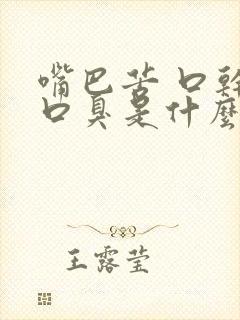 嘴巴苦口幹
口臭是什麼
王露莹